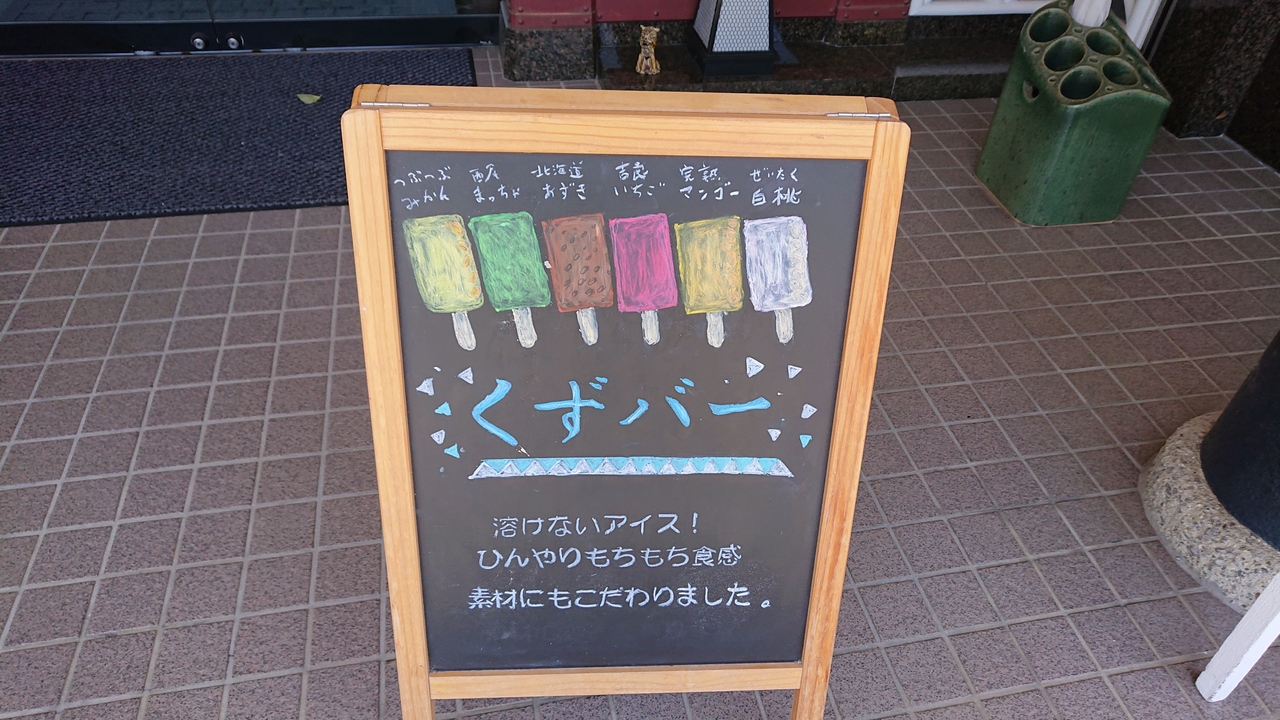 つぶつぶ 西尾 北海道 吉良 完熟 ぜいたく
みかん まっちゃ あずき いちご マンゴー 白桃
くずバー
溶けないアイス！
ひんやりもちもち食感
素材にもこだわりました。